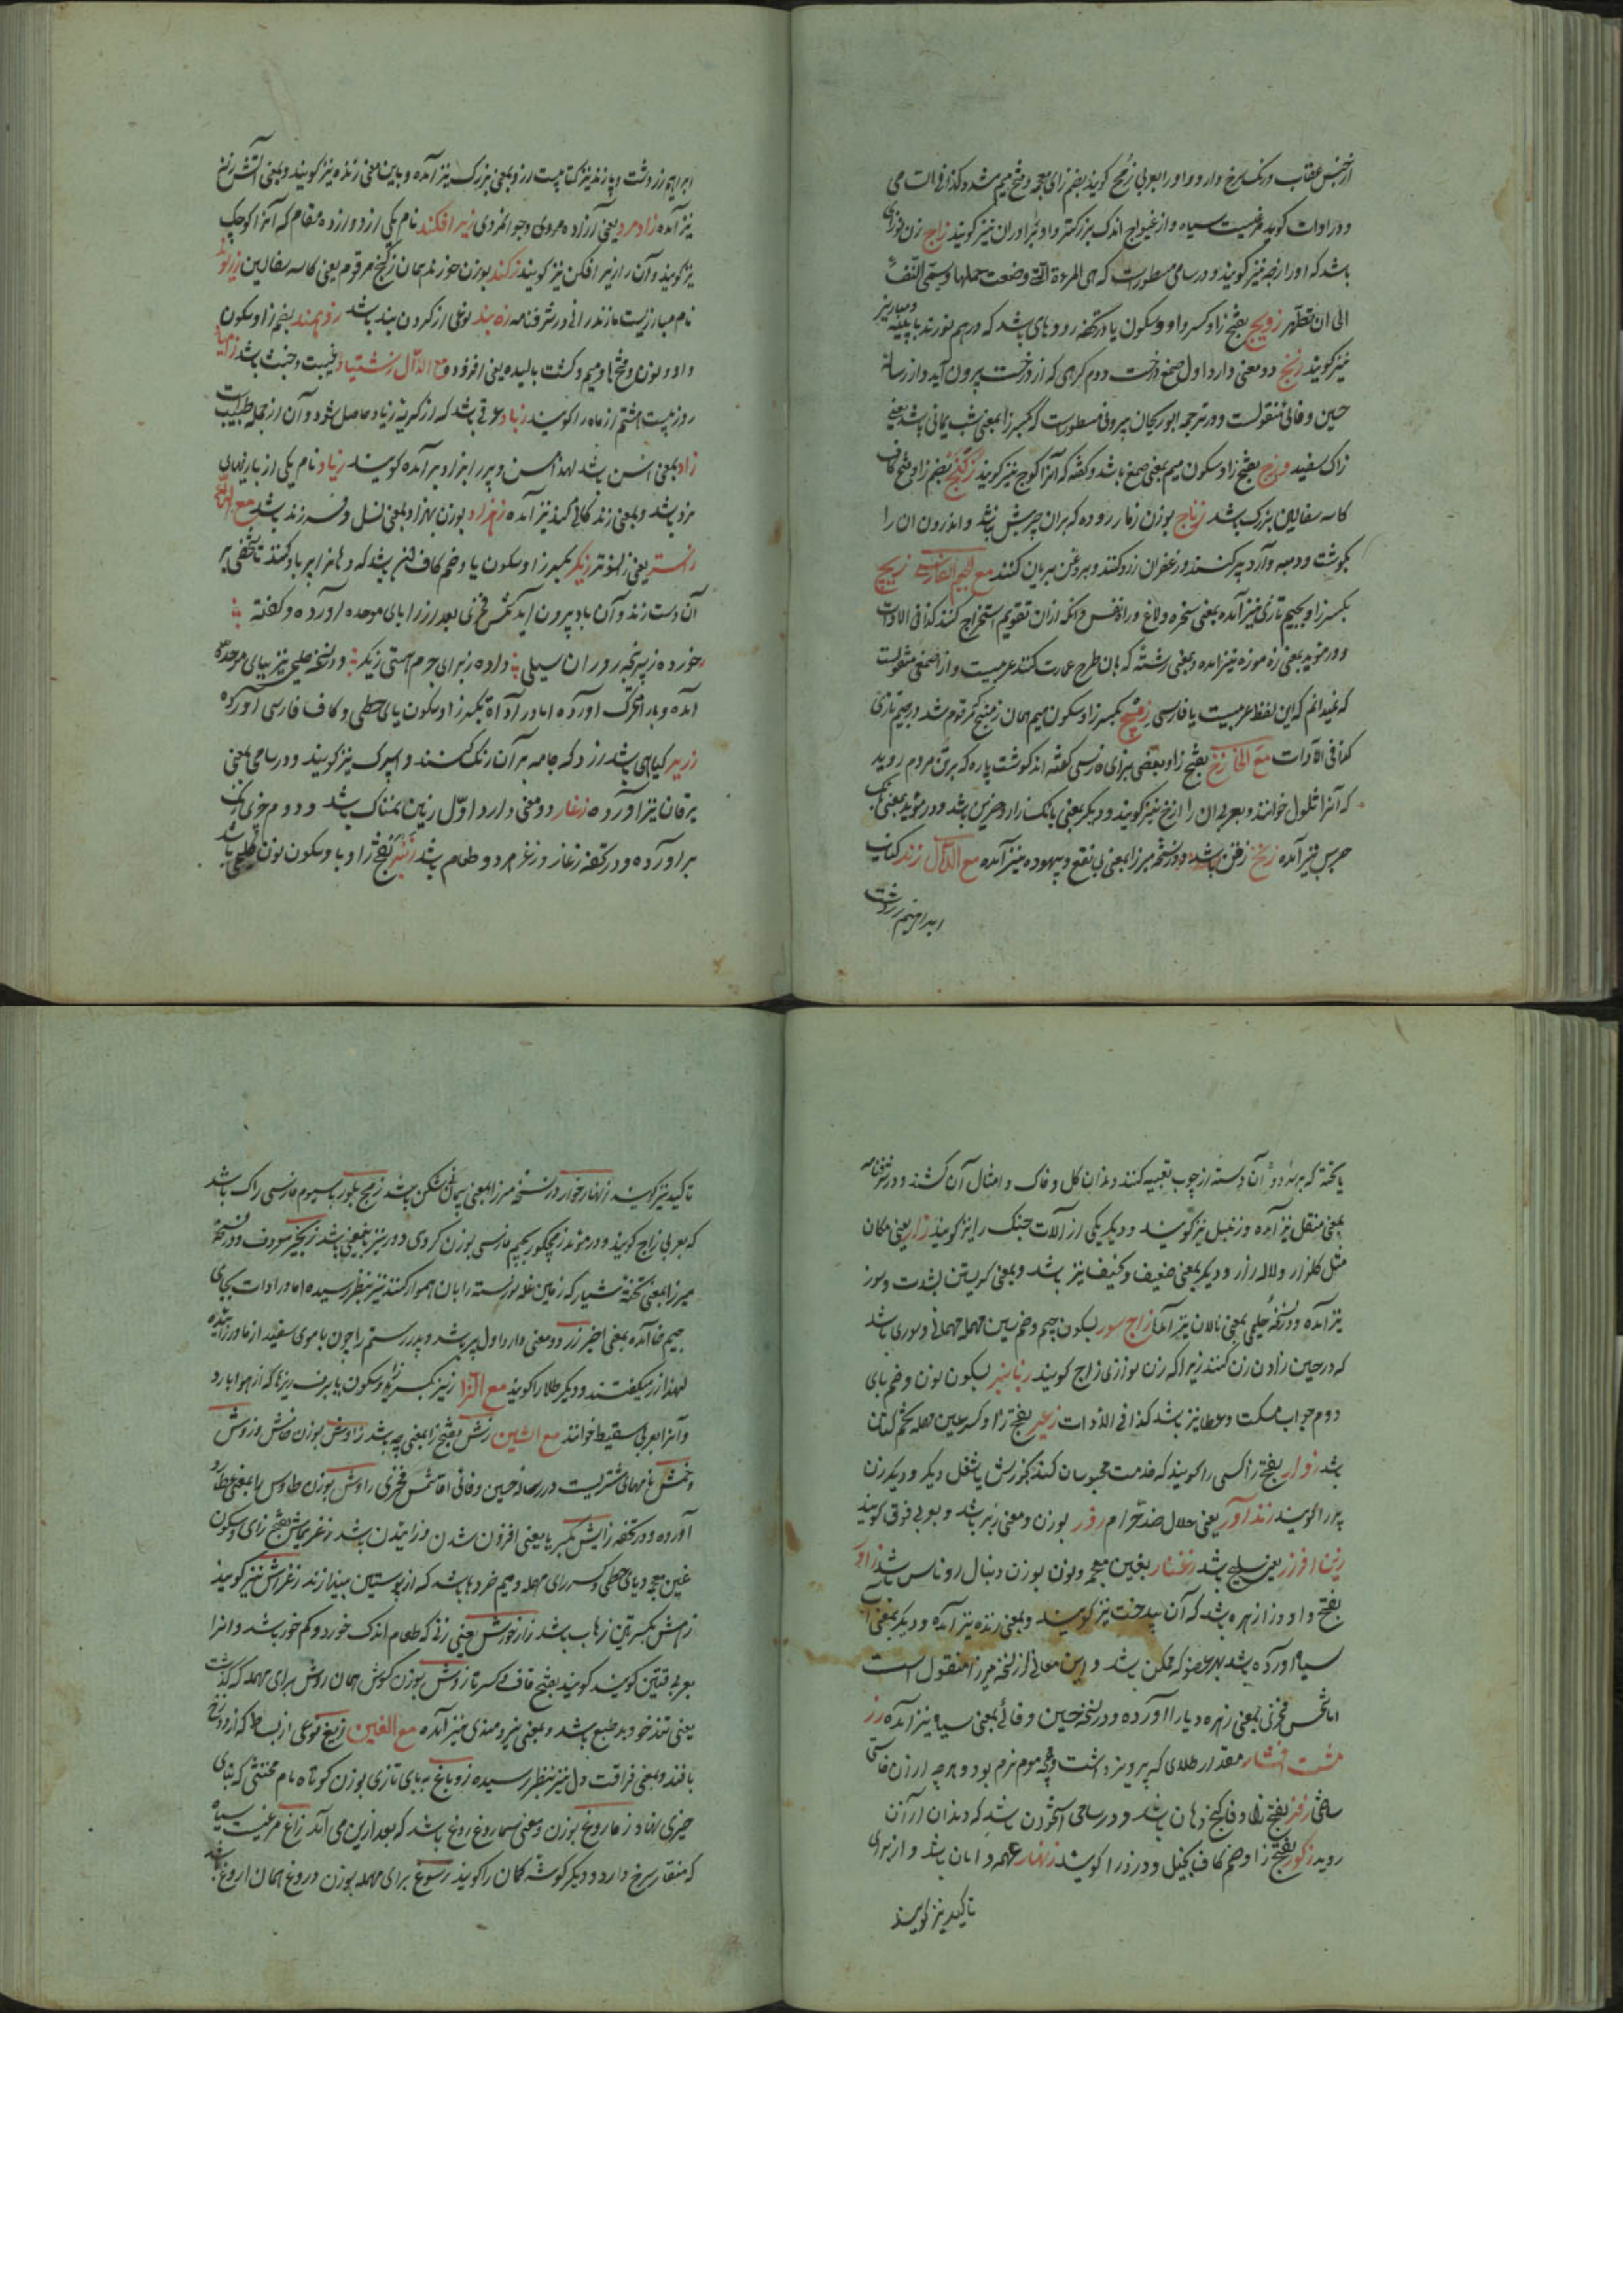 از جنس عقاب و رنگ سرخ دارد و او را بعربی زمج گویند بضم زای معجمه و فتح میم مشدد کذا فی السامی
و در ادات گوید مرغیست سیاه و از غلیواج اندک بزرگتر و او دو برادران نیز گویند زاج زن نوزای
باشد که او را زچه نیز گویند و در سامی مسطورست که هی المرءة التی وضعت حملها و یسمی النفساء
الی ان تطهر زویج بفتح زا و کسر واو و سکون یا در تحفه روده‌ای باشد که درهم نوردند با پیه
نیز گویند زنج دو معنی دارد اول صمغ درخت دوم گرهی که از درخت بیرون آید و از رساله
حسین وفائی منقولست و در ترجمه ابوریحان بیرونی مسطورست که بکسر زا بمعنی شب یمانی باشد یعنی
زاک سفید و زمج بفتح زا و سکون میم بمعنی صمغ باشد و گفته که آنرا کوج نیز گویند زکنج بضم زا و فتح کاف
کاسه سفالین بزرگ باشد زناج بوزن زمار روده که بران چربش باشد و اندرون ان را
بگوشت و دمبه و آرد پر کنند و زعفران زرد کنند و بروغن بریان کنند مع الجیم الفارسی زیچ
بکسر زا و بجیم تازی نیز آمده بمعنی سخره و لاغ و رانفس و انکه ازان تقویم استخراج کنند کذا فی الادات
و در مؤید بمعنی زه موزه نیز امده و بمعنی رشته که بان طرح عمارت کنند عربیست و از اصمعی منقولست
که نمیدانم که این لفظ عربیست یا فارسی زمچ بکسر زا و سکون میم همان زمنج که مرقوم شد در جیم تازی
کذا فی الادات مع الخا زخ بفتح زا و بعضی بزای فارسی گفته اند گوشت پاره که بر تن مردم روید
که آنرا ثلول خوانند و بعربی ان را ازخ نیز گویند و دیگر بمعنی بانک زار و حزین باشد و در مؤید بمعنی بانک
جرس نیز آمده زنخ زقن باشد و در نسخه میرزا بمعنی بی نفع و بیهوده نیز آمده مع الدال زند کتاب
ابراهیم زردشت
ابراهیم زردشت و پازند نیز کتابیست ازو بمعنی بزرگ نیز آمده و باین معنی زنده نیز گویند و بمعنی آتش زنه
نیز آمده زادمرد یعنی آزاده مردی و جوانمردی زیرافکند نام یکی از دوازده مقام که آنرا کوچک
نیز گویند و آن را زیر افکن نیز گویند زکند بوزن خورند همان زکنج مرقوم یعنی کاسه سفالین
نام مبارزیست مازندرانی در شرفنامه زه بند نوعی از گردن بند باشد زومند بضم زا و سکون
واو و نون و فتح ها و میم و کشت بالیده یعنی افزوده مع الذال زشتیاد غیبت و خبث باشد زامیاد
روز بیست هشتم از ماه را گویند زباد عرقی باشد که از گربه زیاد حاصل شود و آن از جمله طیب است
زاد بمعنی سن باشد لهذا مسن و پیر را بزاد برآمده گویند زیاد نام یکی از
مزد باشد و بمعنی زندگانی کند نیز آمده زهزاد بوزن بهزاد بمعنی نسل و فرزند باشد مع الراء
زستر یعنی زانسوتر زنکر بکسر زا و سکون یا و ضم کاف انبر باشد که دهانرا پر باد کنند تا شخصی بر
آن دست زند و آن باد بیرون اید شمس فخری بعد از زا بای موحده آورده و گفته
خورده زپیر و روران سیلی داده زبرای جرم هستی زیکر و در نسخه حلیمی نیز ببای موحده
آمده و با را محرک آورده اما در ادات بکسر زا و سکون یای حطی و کاف فارسی آورده
زریر گیاهی باشد زرد که جامه بر آن رنگ کنند و اسپرک نیز گویند و در سامی بمعنی
یرقان نیز آورده زغار دو معنی دارد اول زمین نمناک باشد و دوم
بر آورده و در تحفه زغار و زغر هر دو طعام باشد زنبر بفتح زا و با و سکون نون
یا تخته که بر سر دو آن دسته از چوب تعبیه کنند و بدان گل و خاک و امثال آن کشند و در شرفنامه
بمعنی منقل نیز آمده و زنبیل نیز گویند و دیگر یکی از آلات جنگ را نیز گویند زار یعنی مکان
مثل گلزار و لاله زار و دیگر بمعنی ضعیف و نحیف نیز باشد و بمعنی گریستن بشدت و سوز
نیز آمده و در نسخه حلیمی بمعنی نالان نیز آمده زاج سور بسکون جیم و ضم سین مهمله مهمانی و سوری باشد
که در حین زادن زن کنند زیرا که زن نوزای زاج گویند زنانبر بسکون نون و ضم بای
دوم جواب مسکت و عطا نیز باشد کذا فی الادات زغیر بفتح زا و کسر غین معجمه تخم کتان
باشد زوار بفتح زا کسی را گویند که خدمت محبوسان کند بخورش یا شغل دیگر و دیگر زن
پیر را گویند زنداور یعنی حلال ضد حرام زور بوزن و معنی زبر باشد و بعربی فوق گویند
زین افزر یعنی سلاح باشد زغنار بغین معجمه و نون بوزن دنبال روناس باشد زاور
بفتح واو و زا زهره باشد که آن بیدخت نیز گویند و بمعنی زنده نیز آمده و دیگر بمعنی آب
سیاه آورده باشد بهر عضو که ممکن باشد و این معانی از نسخه میرزا منقول است
اما شمس فخری بمعنی زهره و یارا آورده و در نسخه حسین وفائی بمعنی سیاه نیز آمده زر
مشت افشار مقدار طلای که پرویز داشت و همچو موم نرم بود و هرچه ازان خواستی
ساختی زفر بفتح زا و فا کنج دهان باشد و در سامی استخوان باشد که دندان از آن
روید زکور بفتح زا و ضم کاف بخیل و دزد را گویند زنهار عهد و امان باشد و از برای
تاکید نیز گویند
تاکید نیز گویند زنهار خوار در نسخه میرزا بمعنی پیمان شکن باشد زمج بلور با سیوم فارسی زاک باشد
که بعربی زاج گویند و در مؤید زمچکور بجیم فارسی بوزن گردی دور نیز باین معنی باشد زنجیر معروف و در نسخه
میرزا بمعنی تخته شیار که زمین غله نورسته را بان هموار کنند نیز بنظر رسیده اما در ادات بجای
جیم خا آمده بمعنی اخیر زر دو معنی دارد اول پیر باشد و پدر رستم را چون با موی سفید از مادر زاییده
لهذا زر میگفتند و دیگر طلا را گویند مع الزا زیز بکسر زا و سکون یا برف ریزها که از هوا بارد
و آنرا بعربی سقیط خوانند مع الشین زش بفتح زا بمعنی چه باشد زاوش بوزن خامش و زوش
و خمش نامهای مشتریست در رساله حسین وفائی اما شمس فخری زاوش بوزن طاوس را بمعنی عطارد
آورده و در تحفه زایش بکسر یا بمعنی افزون شدن و زائیدن باشد زغریماش بفتح زای و سکون
غین معجمه و یای حطی و کسر رای مهمله و میم خردها باشد که از پوستین بیندازند زغراش نیز گویند
زهش بکسرتین زهاب باشد زارخورش یعنی زنی که طعام اندک خورد و کم خور باشد و انرا
بعربی قتین گویند گویند بفتح قاف و کسر تا زوش بوزن گوش همان روش برای مهمله که گذشت
یعنی تندخو و بد طبع باشد و بمعنی نیرومندی نیز آمده مع الغین زیغ نوعی از بساط که از دوخ
بافند و بمعنی فراقت دل نیز بنظر رسیده زوباغ ببای تازی بوزن کوتاه نام مخنثی که بنای
حیزی نهاد زماروغ بوزن و معنی سماروغ باشد که بعد ازین می آید زاغ مرغیست سیاه
که منقار سرخ دارد و دیگر گوشه کمان را گویند زروغ برای مهمله بوزن دروغ همان اروغ باشد